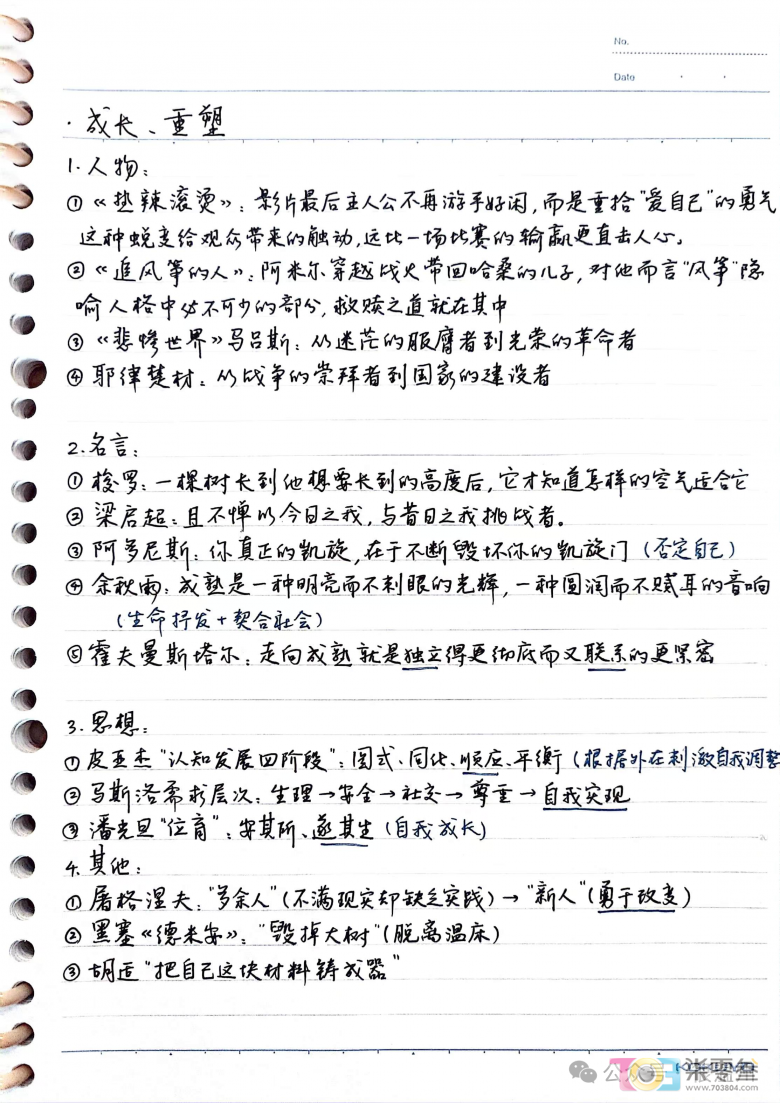 No.
Date
· 成长、重塑
1. 人物：
① 《热辣滚烫》：影片最后主人公不再游手好闲，而是重拾“爱自己”的勇气
这种蜕变给观众带来的触动，远比一场比赛的输赢更直击人心。
② 《追风筝的人》：阿米尔穿越战火带回哈桑的儿子，对他而言“风筝”隐
喻人格中必不可少的部分，救赎之道就在其中
③ 《悲惨世界》马吕斯：从迷茫的服膺者到光荣的革命者
④ 耶律楚材：从战争的崇拜者到国家的建设者
2. 名言：
① 梭罗：一棵树长到他想要长到的高度后，它才知道怎样的空气适合它
② 梁启超：且不惮以今日之我，与昔日之我挑战者。
③ 阿多尼斯：你真正的凯旋，在于不断毁坏你的凯旋门（否定自己）
④ 余秋雨：成熟是一种明亮而不刺眼的光辉，一种圆润而不腻耳的音响
（生命抒发+契合社会）
⑤ 霍夫曼斯塔尔：走向成熟就是独立得更彻底而又联系的更紧密
3. 思想：
① 皮亚杰“认知发展四阶段”：图式、同化、顺应、平衡（根据外在刺激自我调整
② 马斯洛需求层次：生理→安全→社交→尊重→自我实现
③ 潘光旦“位育”：安其所、遂其生（自我成长）
4. 其他：
① 屠格涅夫：“多余人”（不满现实却缺乏实践）→“新人”（勇于改变）
② 黑塞《德米安》：“毁掉大树”（脱离温床）
③ 胡适“把自己这块材料铸成器”
公众号
www.703804.com